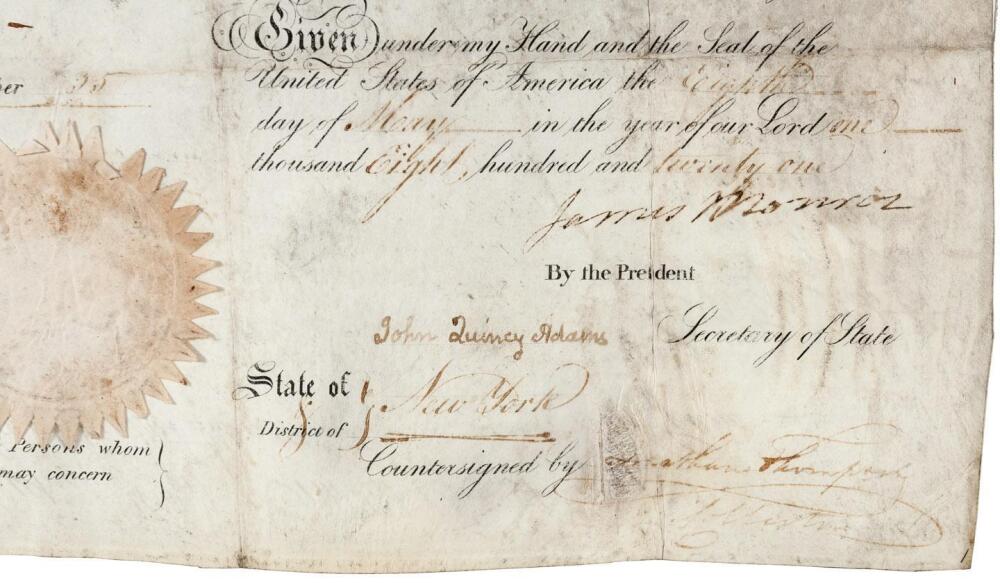 Given under my Hand and the Seal of the
United States of America the Eighth
day of May in the year of our Lord one
thousand Eight hundred and twenty one
James Monroe
By the President
John Quincy Adams Secretary of State
State of
District of } New York
Countersigned by Jonathan Thompson
her 25
Persons whom
may concern }